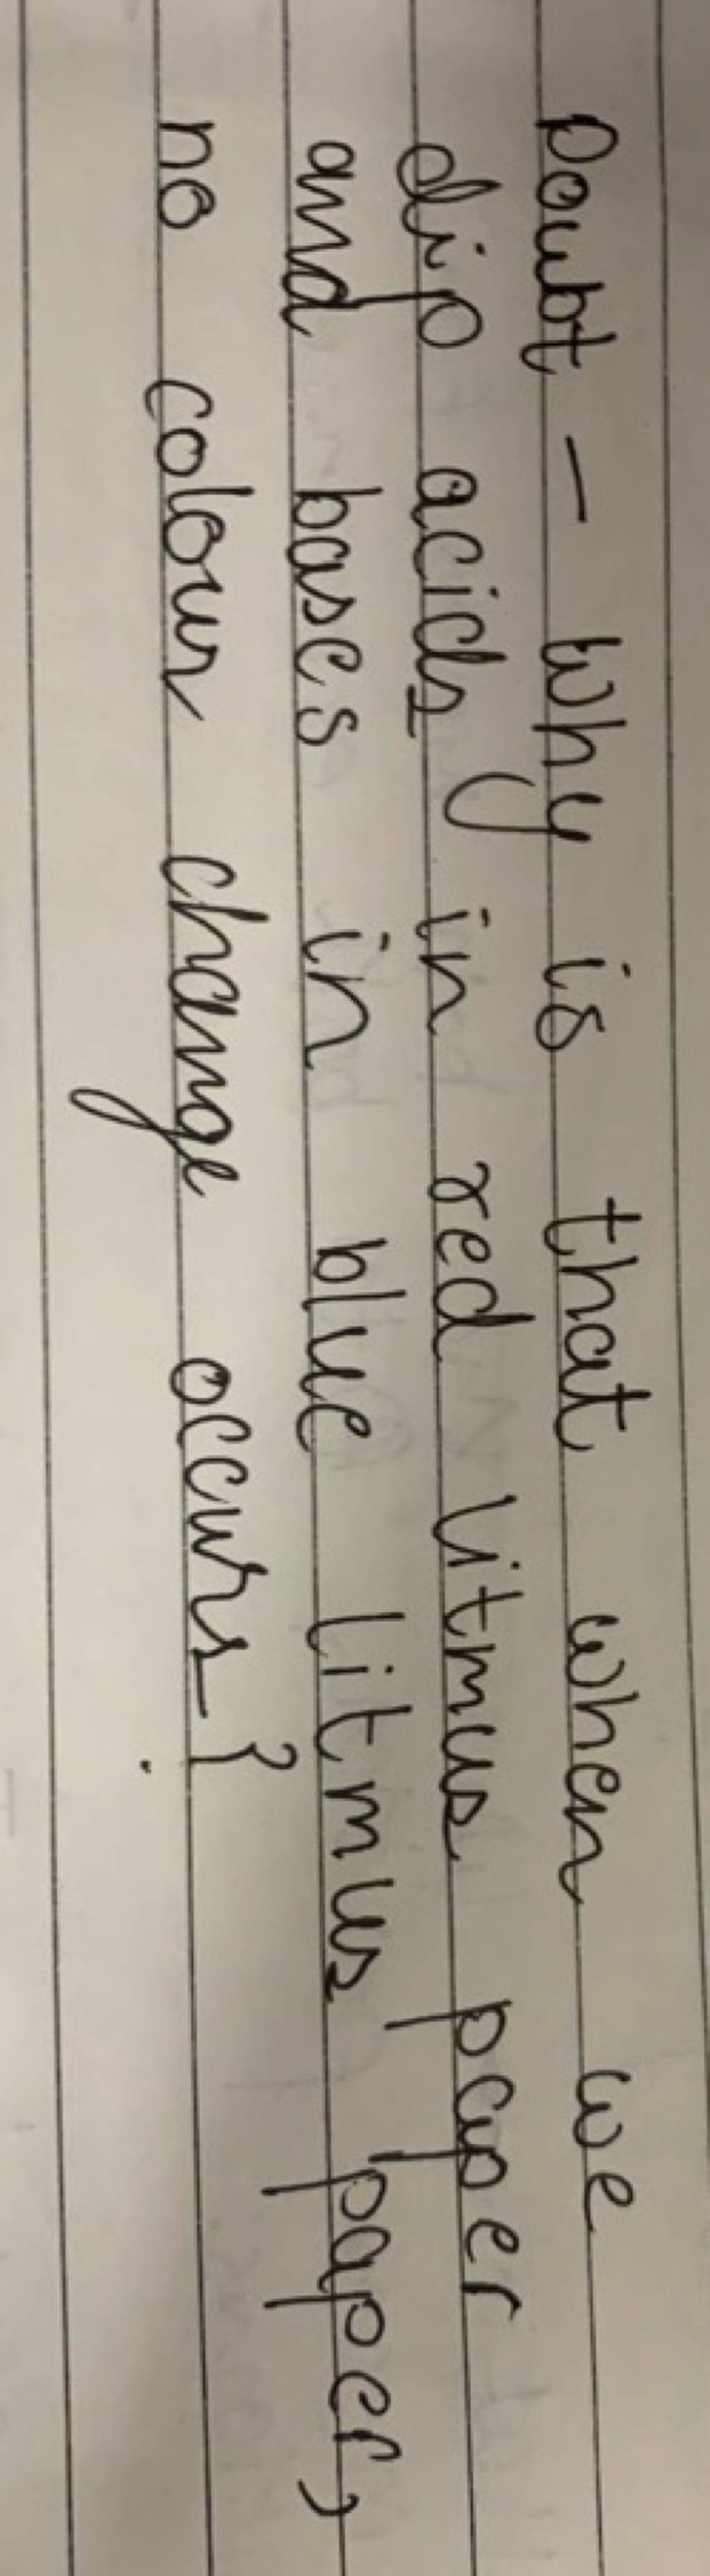 Doubt - Why is that when we
dip acids in red litmus paper
and bases in blue litmus paper,
no colour change occurs?